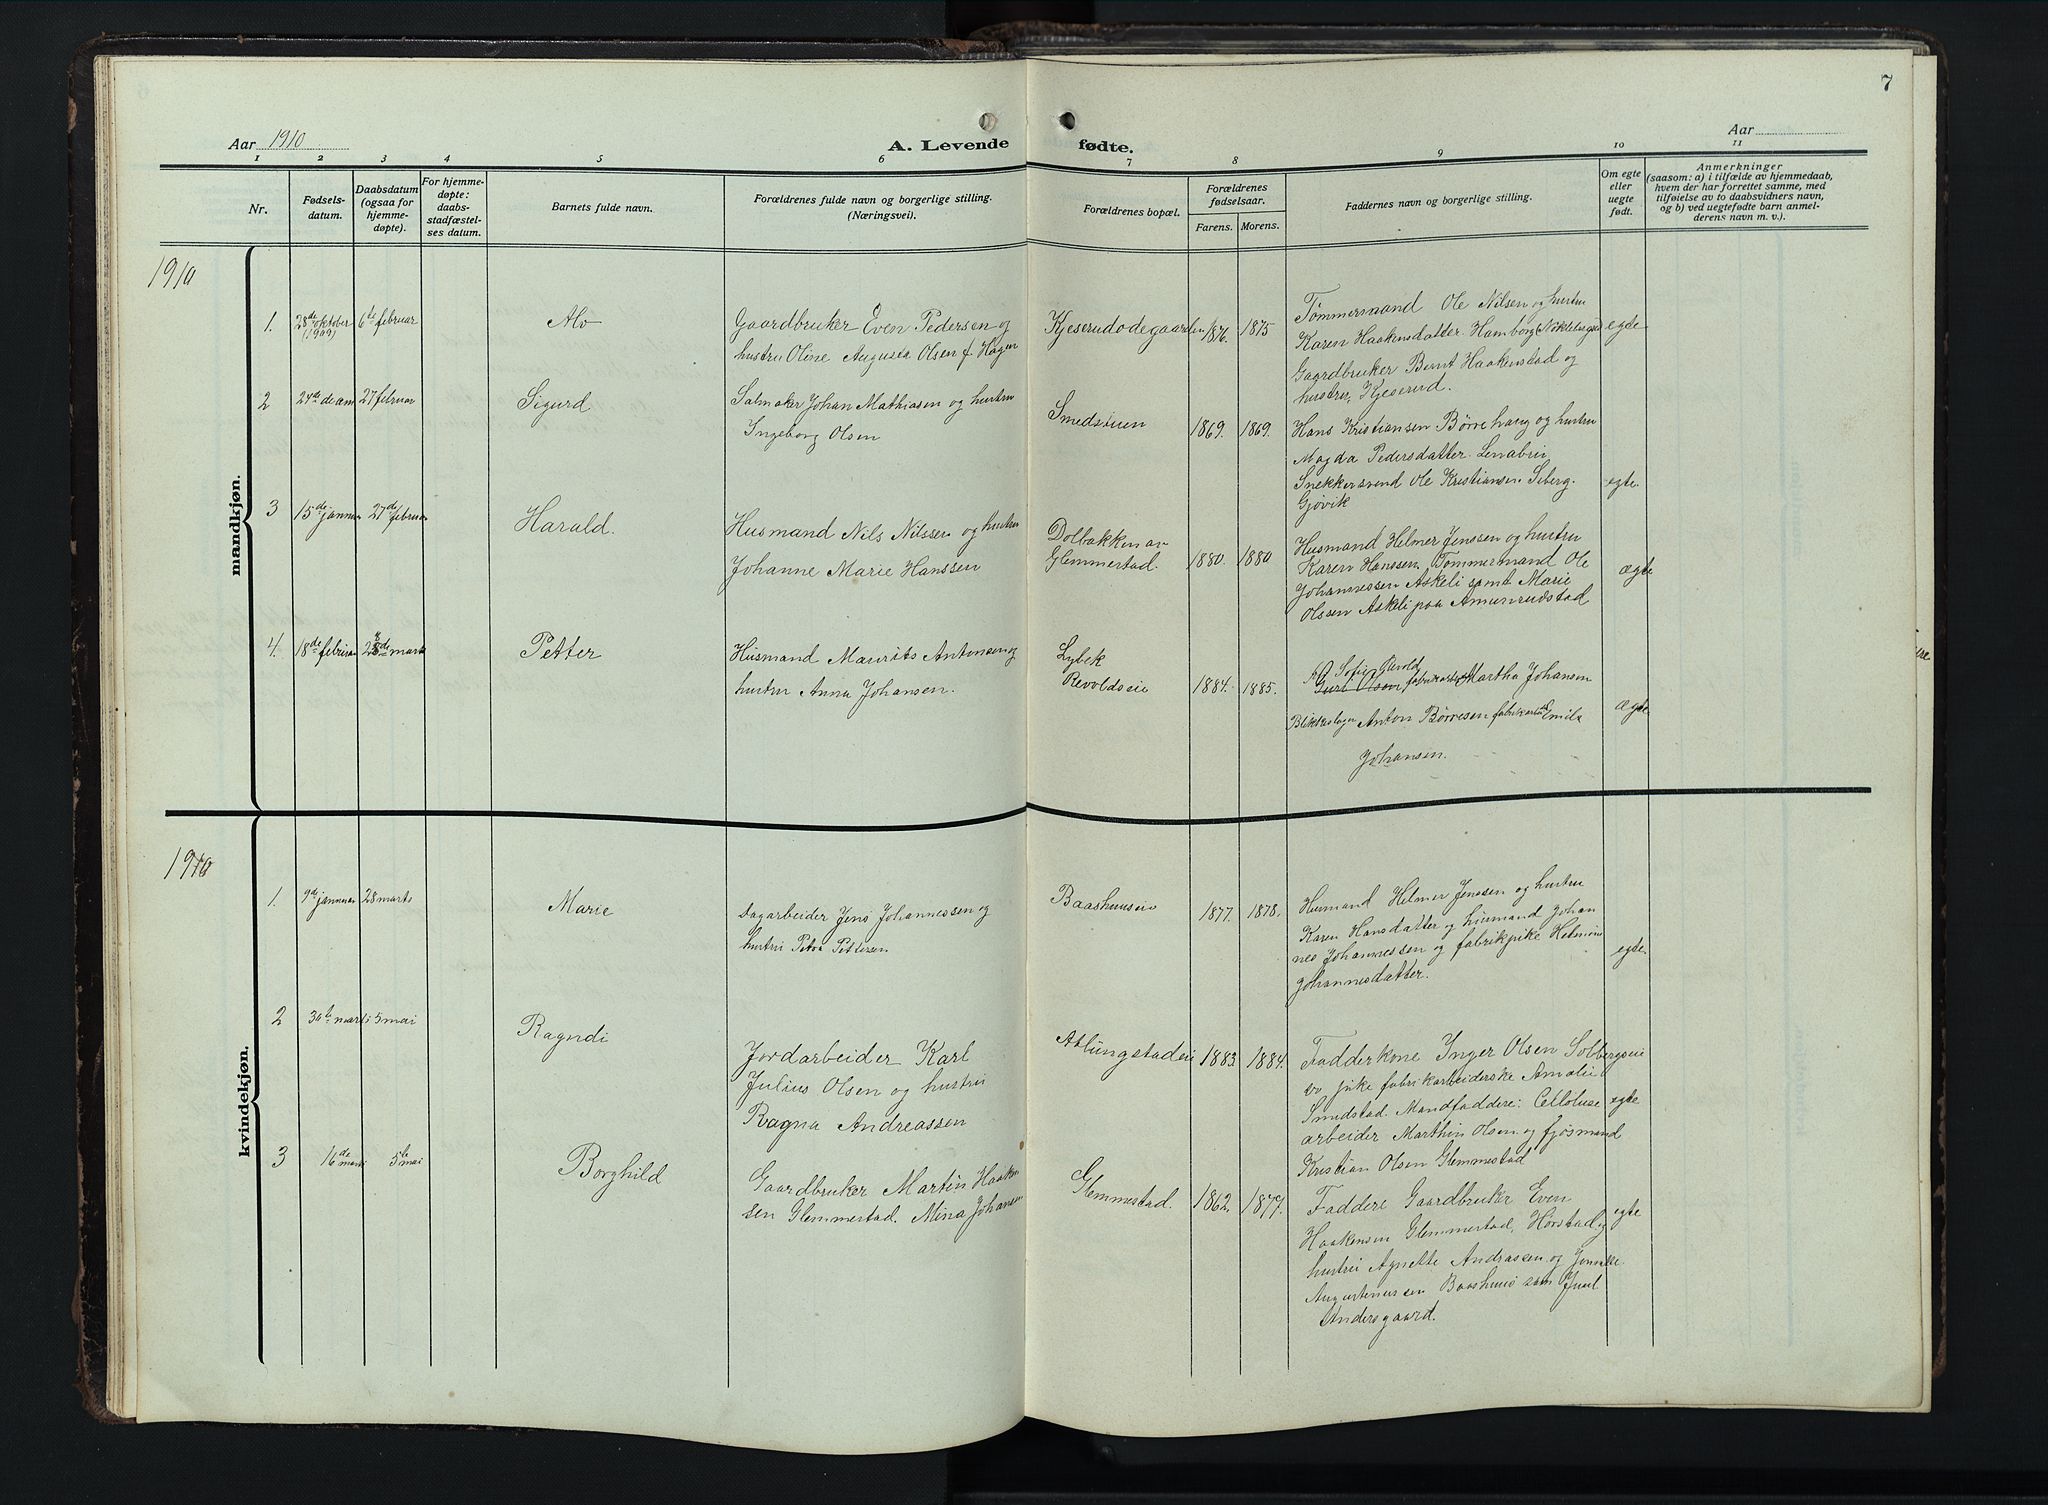 7
Aar 1910
A. Levende fødte.
Aar
1 2 3 4 5 6 7 8 9 10 11
Nr.
Fødsels-
datum.
Daabsdatum
(ogsaa for
hjemme-
døpte).
For hjemme-
døpte:
daabs-
stadfæstel-
ses datum.
Barnets fulde navn.
Forældrenes fulde navn og borgerlige stilling.
(Næringsvei).
Forældrenes bopæl.
Forældrenes
fødselsaar.
Farens. Morens.
Faddernes navn og borgerlige stilling.
Om egte
eller
uegte
født.
Anmerkninger
(saasom: a) i tilfælde av hjemmedaab,
hvem der har forrettet samme, med
tilføielse av to daabsvidners navn,
og b) ved uegtefødte barn anmel-
derens navn m. v.).
1910
mandkjøn.
1. 28de oktober (1909) 6te februar
Alv
Gaardbruker Even Pedersen og
hustru Oline Augusta Olsen f. Hagen
Kjeserudødegaarden 1876. 1875
Tømmermand Ole Nilsen og hustru
Karen Haakensdatter Hamborg
Gaardbruker Bernt Haakenstad og
hustru, Kjeserud.
egte
2 24de decem 27 februar
Sigurd
Salmaker Johan Mathiasen og hustru
Ingeborg Olsen
Smedstuen 1869. 1869.
Hans Kristiansen Børrehaug og hustru
Magda Pedersdatter. Lenabrui
Snekkersvend Ole Kristiansen Siberg.
Gjøvik
egte
3 15de januar 27de februar
Harald.
Husmand Nils Nilssen og hustru
Johanne Marie Hanssen
Dolbakken av
Glemmestad. 1880. 1880
Husmand Helmer Jenssen og hustru
Karen Hanssen. Tømmermand Ole
Johannessen Askeli samt Marie
Olsen Askeli paa Amunrudstad
ægte
4. 18de februar 28de marts
Petter
Husmand Maurits Antonsen og
hustru Anna Johansen.
Lybek
Revoldseie 1884. 1885.
Sofie Revold
Guri Olsen Martha Johansen
Blikkslager Anton Børresen Emila
Johansen.
ægte
1910
kvindekjøn.
1. 9de januar 28 marts
Marie
Dagarbeider Jens Johannessen og
hustru Petra Pettersen
Baashuuseie 1877. 1878.
Husmand Helmer Jenssen og hustru
Karen Hansdatter og husmand Johan
nes Johannessen og fabrikpike
Johannesdatter.
egte
2 30te marts 5 mai
Ragndi
Jordarbeider Karl
Julius Olsen og hustru
Ragna Andreassen
Atlungstadeie 1883 1884.
Fadderkone Inger Olsen Solbergseie
pike fabrikarbeiderske Amalie
Smedstad. Mandfaddere: Celloluse
arbeider Marthin Olsen og fjøsmand
Kristian Olsen Glemmestad
egte
3 16de marts 5te mai
Borghild
Gaardbruker Martin Haaken
sen Glemmestad. Mina Johansen
Glemmestad. 1862. 1877.
Faddere Gaardbruker Even
Haakensen Glemmestad, Hørstad og
hustru Agnette Andrasen og
Baashuus sam Juul
Andersgaard.
egte